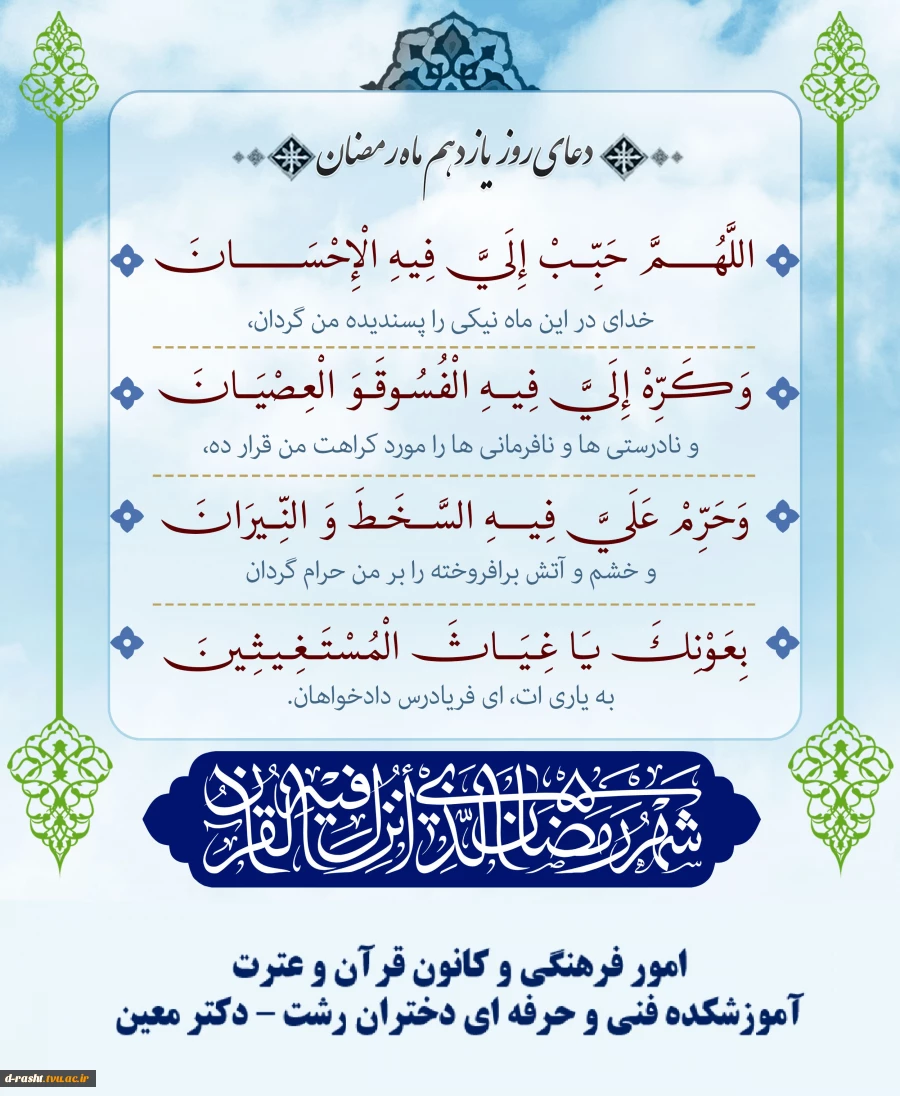 دعای روز یازدهم ماه رمضان
اللَّهُمَّ حَبِّبْ إِلَيَّ فِيهِ الْإِحْسَانَ
خدای در این ماه نیکی را پسندیده من گردان،
وَكَرِّهْ إِلَيَّ فِيهِ الْفُسُوقَوَ الْعِصْيَانَ
و نادرستی ها و نافرمانی ها را مورد کراهت من قرار ده،
وَحَرِّمْ عَلَيَّ فِيهِ السَّخَطَ وَ النِّيرَانَ
و خشم و آتش برافروخته را بر من حرام گردان
بِعَوْنِكَ يَا غِيَاثَ الْمُسْتَغِيثِينَ
به یاری ات، ای فریادرس دادخواهان.
شهر رمضان الذي أنزل فيه القرآن
امور فرهنگی و کانون قرآن و عترت
آموزشکده فنی و حرفه ای دختران رشت - دکتر معین
d-rasht.tvu.ac.ir